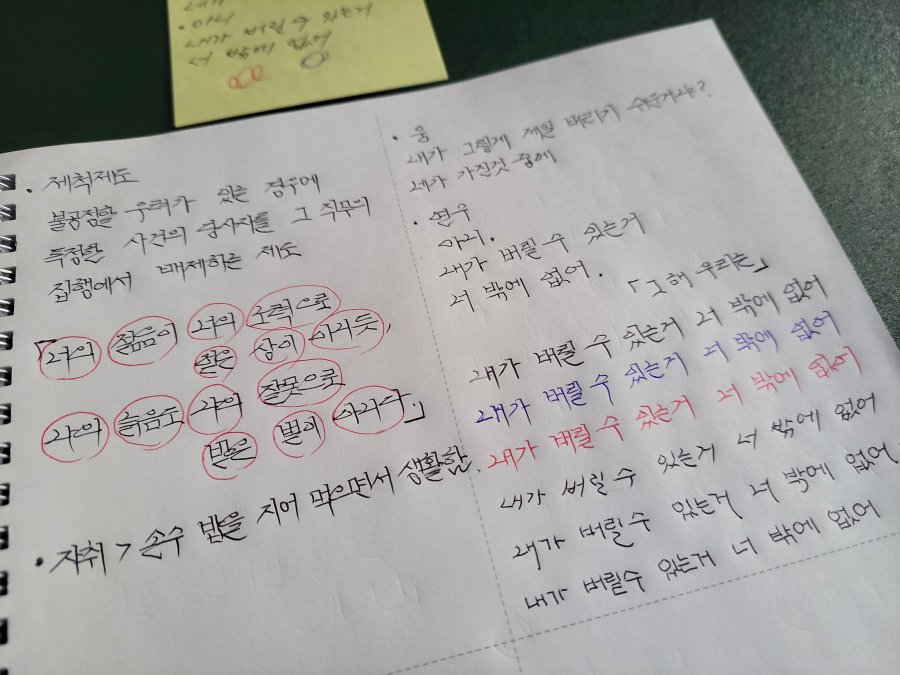 내가
· 아니
내가 버릴 수 있는거
너 밖에 없어
· 제척제도
불공정할 우려가 있는 경우에
특정한 사건의 형사자를 그 직무의
집행에서 배제하는 제도
「너의 젊음이 너의 노력으로
얻은 상이 아니듯,
나의 늙음도 나의 잘못으로
받은 벌이 아니다.」
· 자취 > 손수 밥을 지어 먹으면서 생활함.
· 웅
내가 그렇게 제일 버리기 쉬운거냐?
네가 가진것 중에
· 연수
아니.
내가 버릴 수 있는거
너 밖에 없어. 「그 해 우리는」
내가 버릴 수 있는거 너 밖에 없어
내가 버릴 수 있는거 너 밖에 없어
내가 버릴 수 있는거 너 밖에 없어
내가 버릴 수 있는거 너 밖에 없어
내가 버릴수 있는거 너 밖에 없어
내가 버릴수 있는거 너 밖에 없어